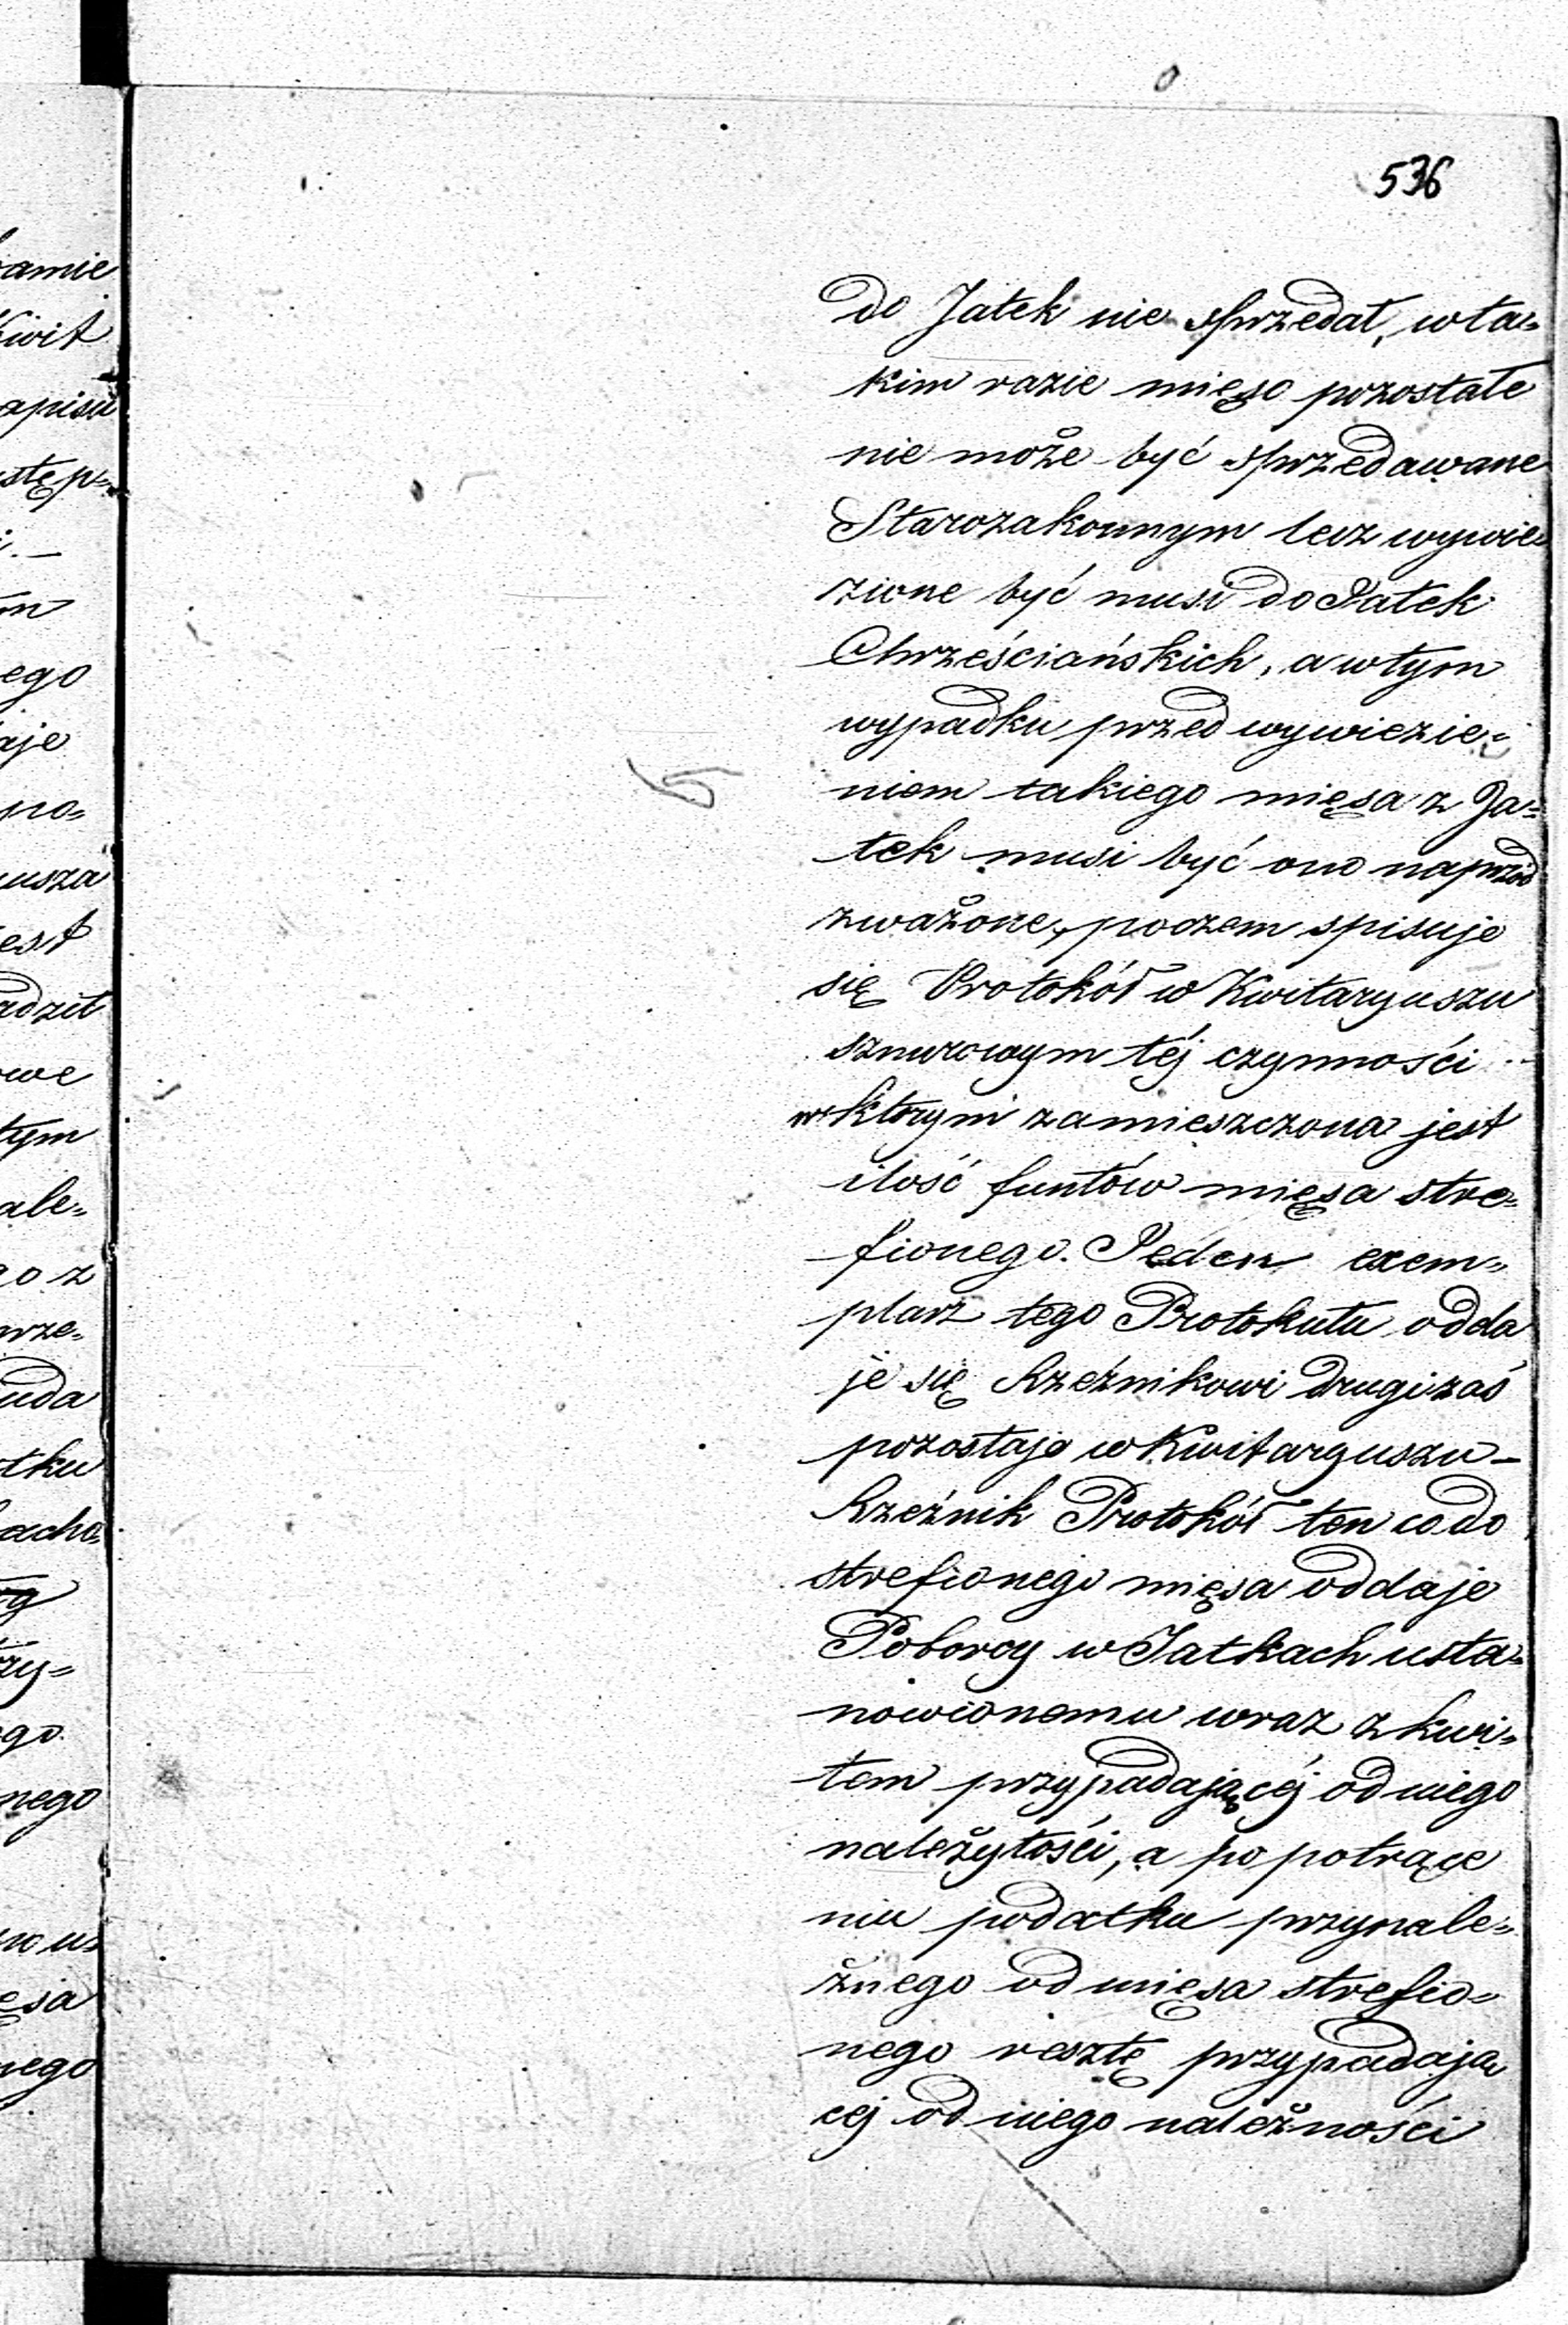 536
do Jatek nie sprzedał, w ta=
kim razie mięso pozostałe
nie może być sprzedawane
Starozakonnym lecz wywie=
zione być musi do Jatek
Chrześciańskich, a w tym
wypadku przed wywiezie=
niem takiego mięsa z Ja=
tek musi być ono naprzód
zważone, poczem spisuje
się Protokół w Kwitaryuszu
sznurowym téj czynności
w którym zamieszczona jest
ilość funtów mięsa stre=
fionego. Jeden exem=
plarz tego Protokułu odda
je się Rzeźnikowi drugi zaś
pozostaje w Kwitaryuszu –
Rzeźnik Protokół ten co do
strefionego mięsa oddaje
Poborcy w Jatkach usta=
nowionemu wraz z kwi=
tem przypadającéj od niego
należytości, a po potrące
niu podatku przynale=
żnego od mięsa strefio=
nego resztę przypadają
cej od niego należności